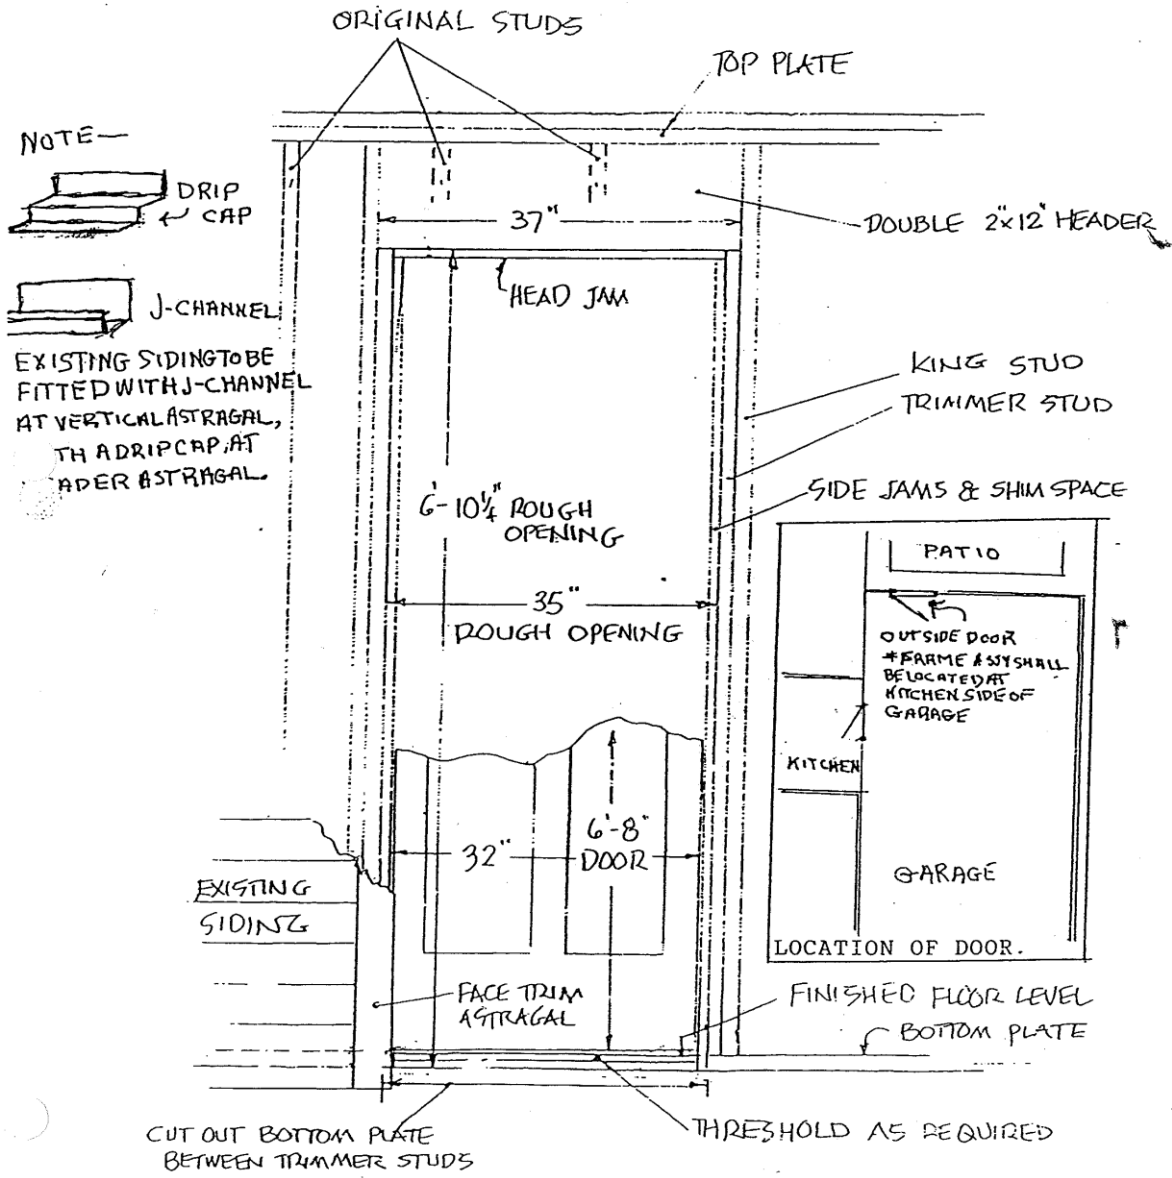 ORIGINAL STUDS
TOP PLATE
NOTE—
DRIP
CAP
37"
DOUBLE 2"x12" HEADER
HEAD JAM
J-CHANNEL
EXISTING SIDING TO BE
FITTED WITH J-CHANNEL
AT VERTICAL ASTRAGAL,
TH A DRIP CAP, AT
ADER ASTRAGAL.
KING STUD
TRIMMER STUD
SIDE JAMS & SHIM SPACE
6'-10¼" ROUGH
OPENING
35"
ROUGH OPENING
PATIO
OUTSIDE DOOR
*FRAME ASSY SHALL
BE LOCATED AT
KITCHEN SIDE OF
GARAGE
KITCHEN
GARAGE
LOCATION OF DOOR.
6'-8"
DOOR
32"
EXISTING
SIDING
FACE TRIM
ASTRAGAL
FINISHED FLOOR LEVEL
BOTTOM PLATE
CUT OUT BOTTOM PLATE
BETWEEN TRIMMER STUDS
THRESHOLD AS REQUIRED